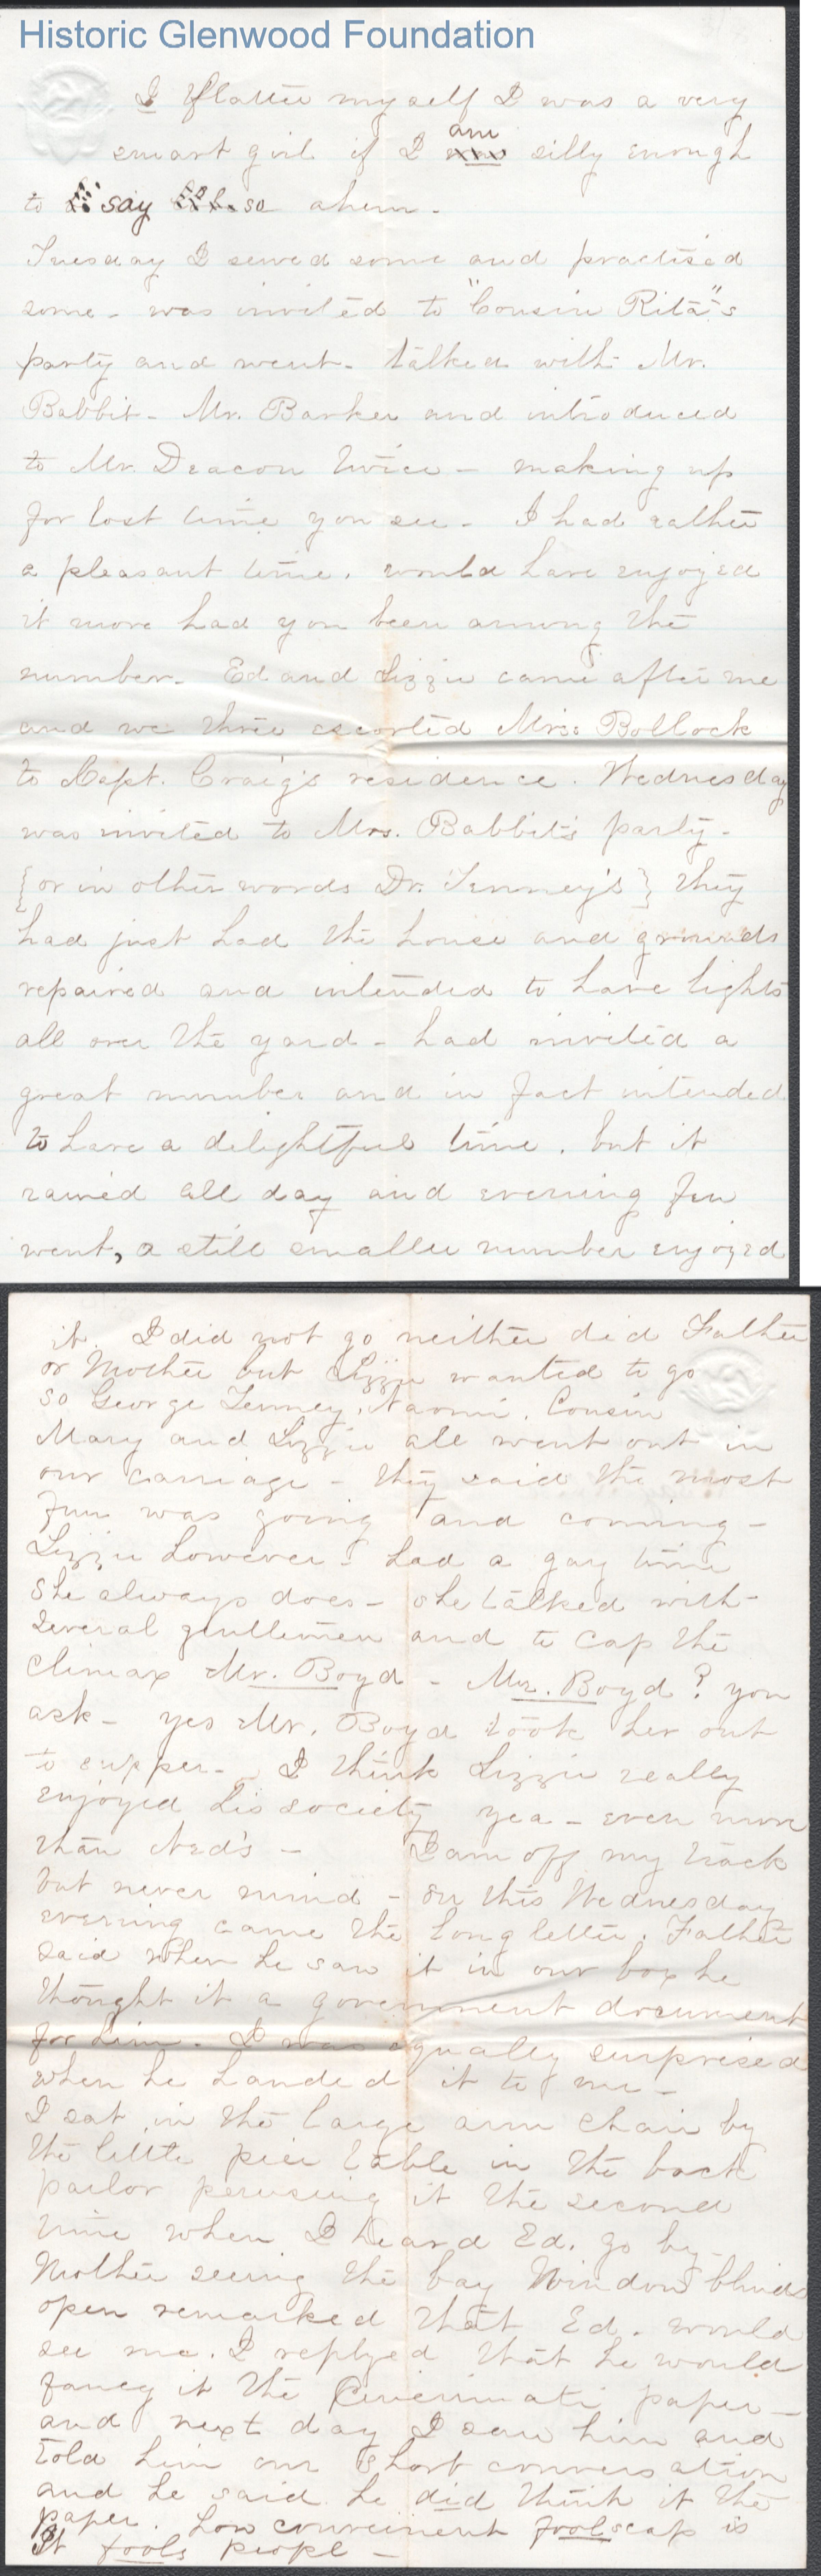 Historic Glenwood Foundation
I flatter myself I was a very
am
smart girl if I silly enough
to say so ahem -
Tuesday I sewed some and practised
some - was invited to "Cousin Rita"'s
party and went - talked with Mr.
Babbit - Mr. Barker and introduced
to Mr. Deacon twice - making up
for lost time you see - I had rather
a pleasant time. would have enjoyed
it more had you been among the
number - Ed and Lizzie came after me
and we three escorted Miss Bollock
to Capt. Craig's residence. Wednesday
was invited to Mrs. Babbit's party -
{or in other words Dr. Tenney's} they
had just had the house and grounds
repaired and intended to have lights
all over the yard - had invited a
great number and in fact intended
to have a delightful time. but it
rained all day and evening few
went, a still smaller number enjoyed
it. I did not go neither did Father
or Mother but Lizzie wanted to go
so George Tenney, Naomi, Cousin
Mary and Lizzie all went out in
our carriage - they said the most
fun was going and coming -
Lizzie however - had a gay time
she always does - she talked with
several gentlemen and to cap the
climax Mr. Boyd - Mr. Boyd? you
ask - yes Mr. Boyd took her out
to supper - I think Lizzie really
enjoyed his society yea - even more
than Ned's - I am off my track
but never mind - on this Wednesday
evening came the long letter. Father
said when he saw it in our box he
thought it a government document
for him - I was equally surprised
when he handed it to me -
I sat in the large arm chair by
the little pier table in the back
parlor perusing it the second
time when I heard Ed. go by -
Mother seeing the bay Window blinds
open remarked that Ed. would
see me. I replyed that he would
fancy it the Cincinnati paper -
and next day I saw him and
told him our short conversation
and he said he did think it the
paper. how convenient foolscap is
It fools peopl -